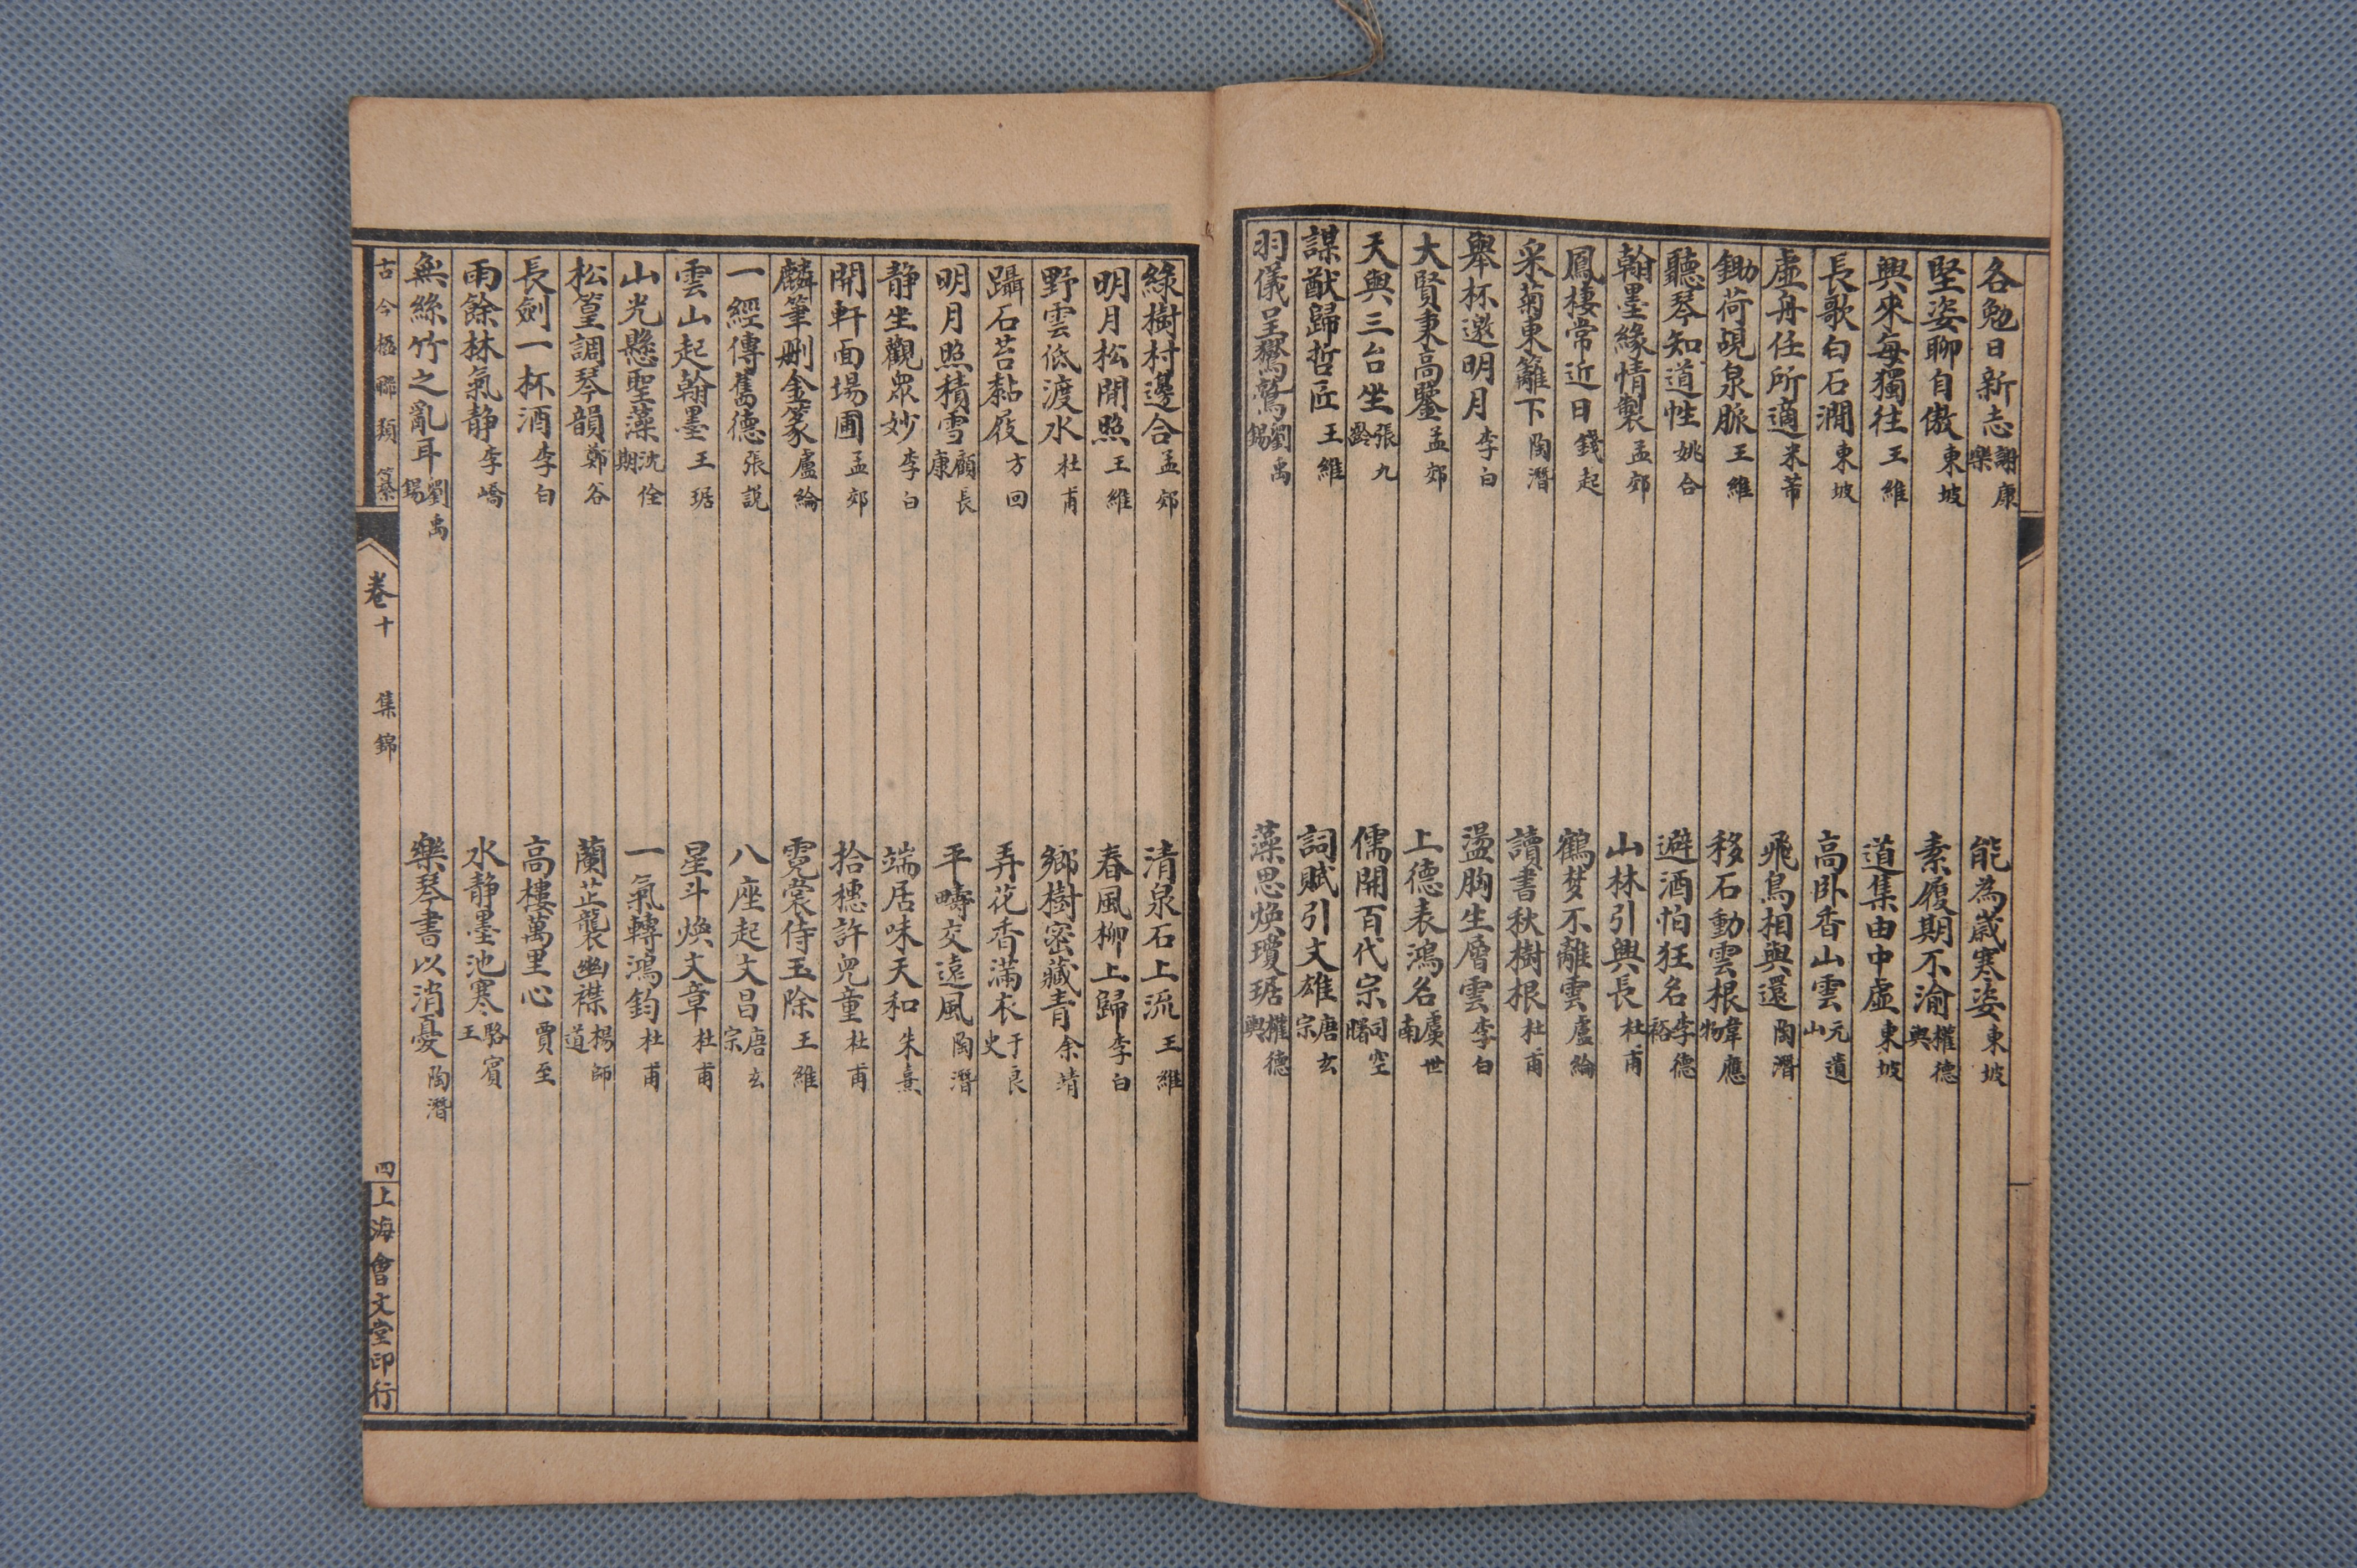 各勉日新志 謝康樂 能為歲寒姿 東坡
堅姿聊自儆 東坡 素履期不渝 權德輿
興來每獨往 王維 道集由中虛 東坡
長歌白石澗 東坡 高卧香山雲 元遺山
虛舟任所適 米芾 飛鳥相與還 陶潛
鋤荷覘泉脈 王維 移石動雲根 韋應物
聽琴知道性 姚合 避酒怕狂名 李德裕
翰墨緣情製 孟郊 山林引興長 杜甫
鳳樓常近日 錢起 鶴梦不離雲 盧綸
采菊東籬下 陶潛 讀書秋樹根 杜甫
舉杯邀明月 李白 盪胸生層雲 李白
大賢秉高鑒 孟郊 上德表鴻名 虞世南
天與三台坐 張九齡 儒開百代宗 司空曙
謀猷歸哲匠 王維 詞賦引文雄 唐玄宗
羽儀呈鸑鷟 劉禹錫 藻思煥瓊琚 權德輿
綠樹村邊合 孟郊 清泉石上流 王維
明月松間照 王維 春風柳上歸 李白
野雲低渡水 杜甫 鄉樹密藏青 余靖
躡石苔黏屐 方回 弄花香滿衣 于良史
明月照積雪 顧長康 平疇交遠風 陶潛
靜坐觀眾妙 李白 端居味天和 朱熹
開軒面場圃 孟郊 拾穗許兒童 杜甫
麟筆刪金篆 盧綸 霓裳侍玉除 王維
一經傳舊德 張説 八座起文昌 唐玄宗
雲山起翰墨 王琚 星斗煥文章 杜甫
山光懸聖藻 沈佺期 一氣轉鴻鈞 杜甫
松篁調琴韻 鄭谷 蘭芷襲幽襟 楊師道
長劍一杯酒 李白 高樓萬里心 賈至
雨餘林氣靜 李嶠 水靜墨池寒 駱賓王
無絲竹之亂耳 劉禹錫 樂琴書以消憂 陶潛
古今楹聯類纂 卷十 集錦 四 上海會文堂印行